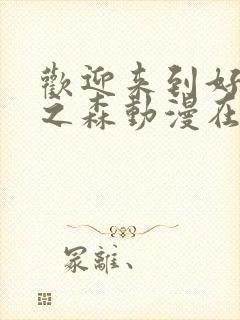 歡迎来到好
之森動漫在
冢離、